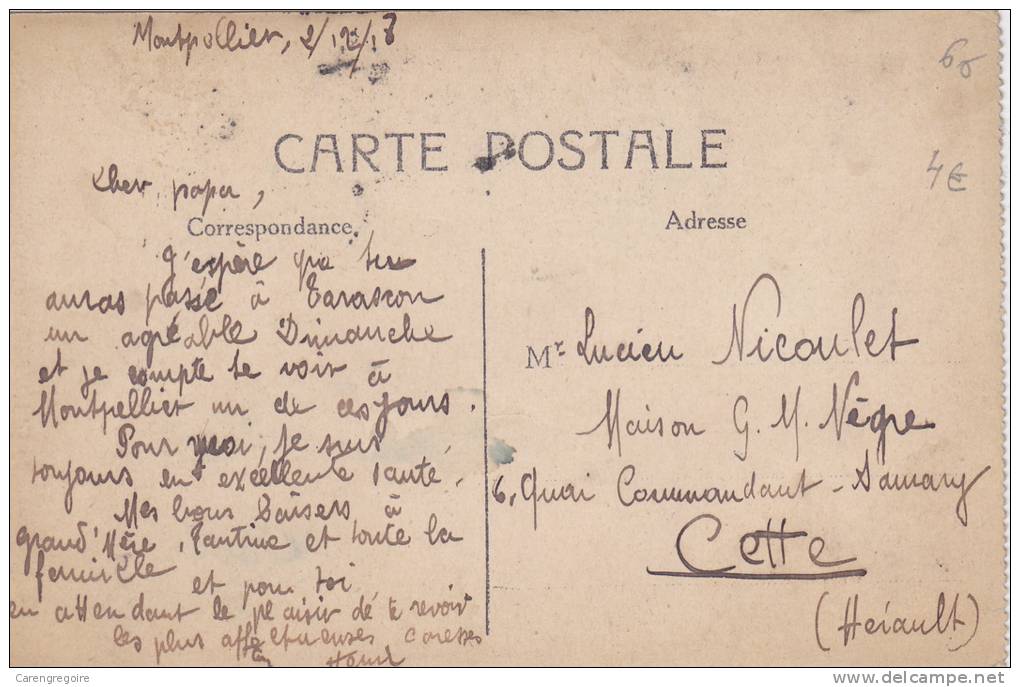 Montpellier, 2/12/17
60
CARTE POSTALE
4€
Cher papa,
Correspondance
Adresse
J'espère que tu
auras passé à Tarascon
un agréable Dimanche
et je compte te voir à
Montpellier un de ces jours.
Pour moi, je suis
toujours en excellente santé.
Mes bons baisers à
grand'Mère, Tantine et toute la
famille et pour toi
en attendant le plaisir de te revoir
les plus affectueuses caresses
Mr. Lucien Nicoulet
Maison G. M. Nègre
6, Quai Commandant-Samary
Cette
(Hérault)
Carengregoire
delcampe.net